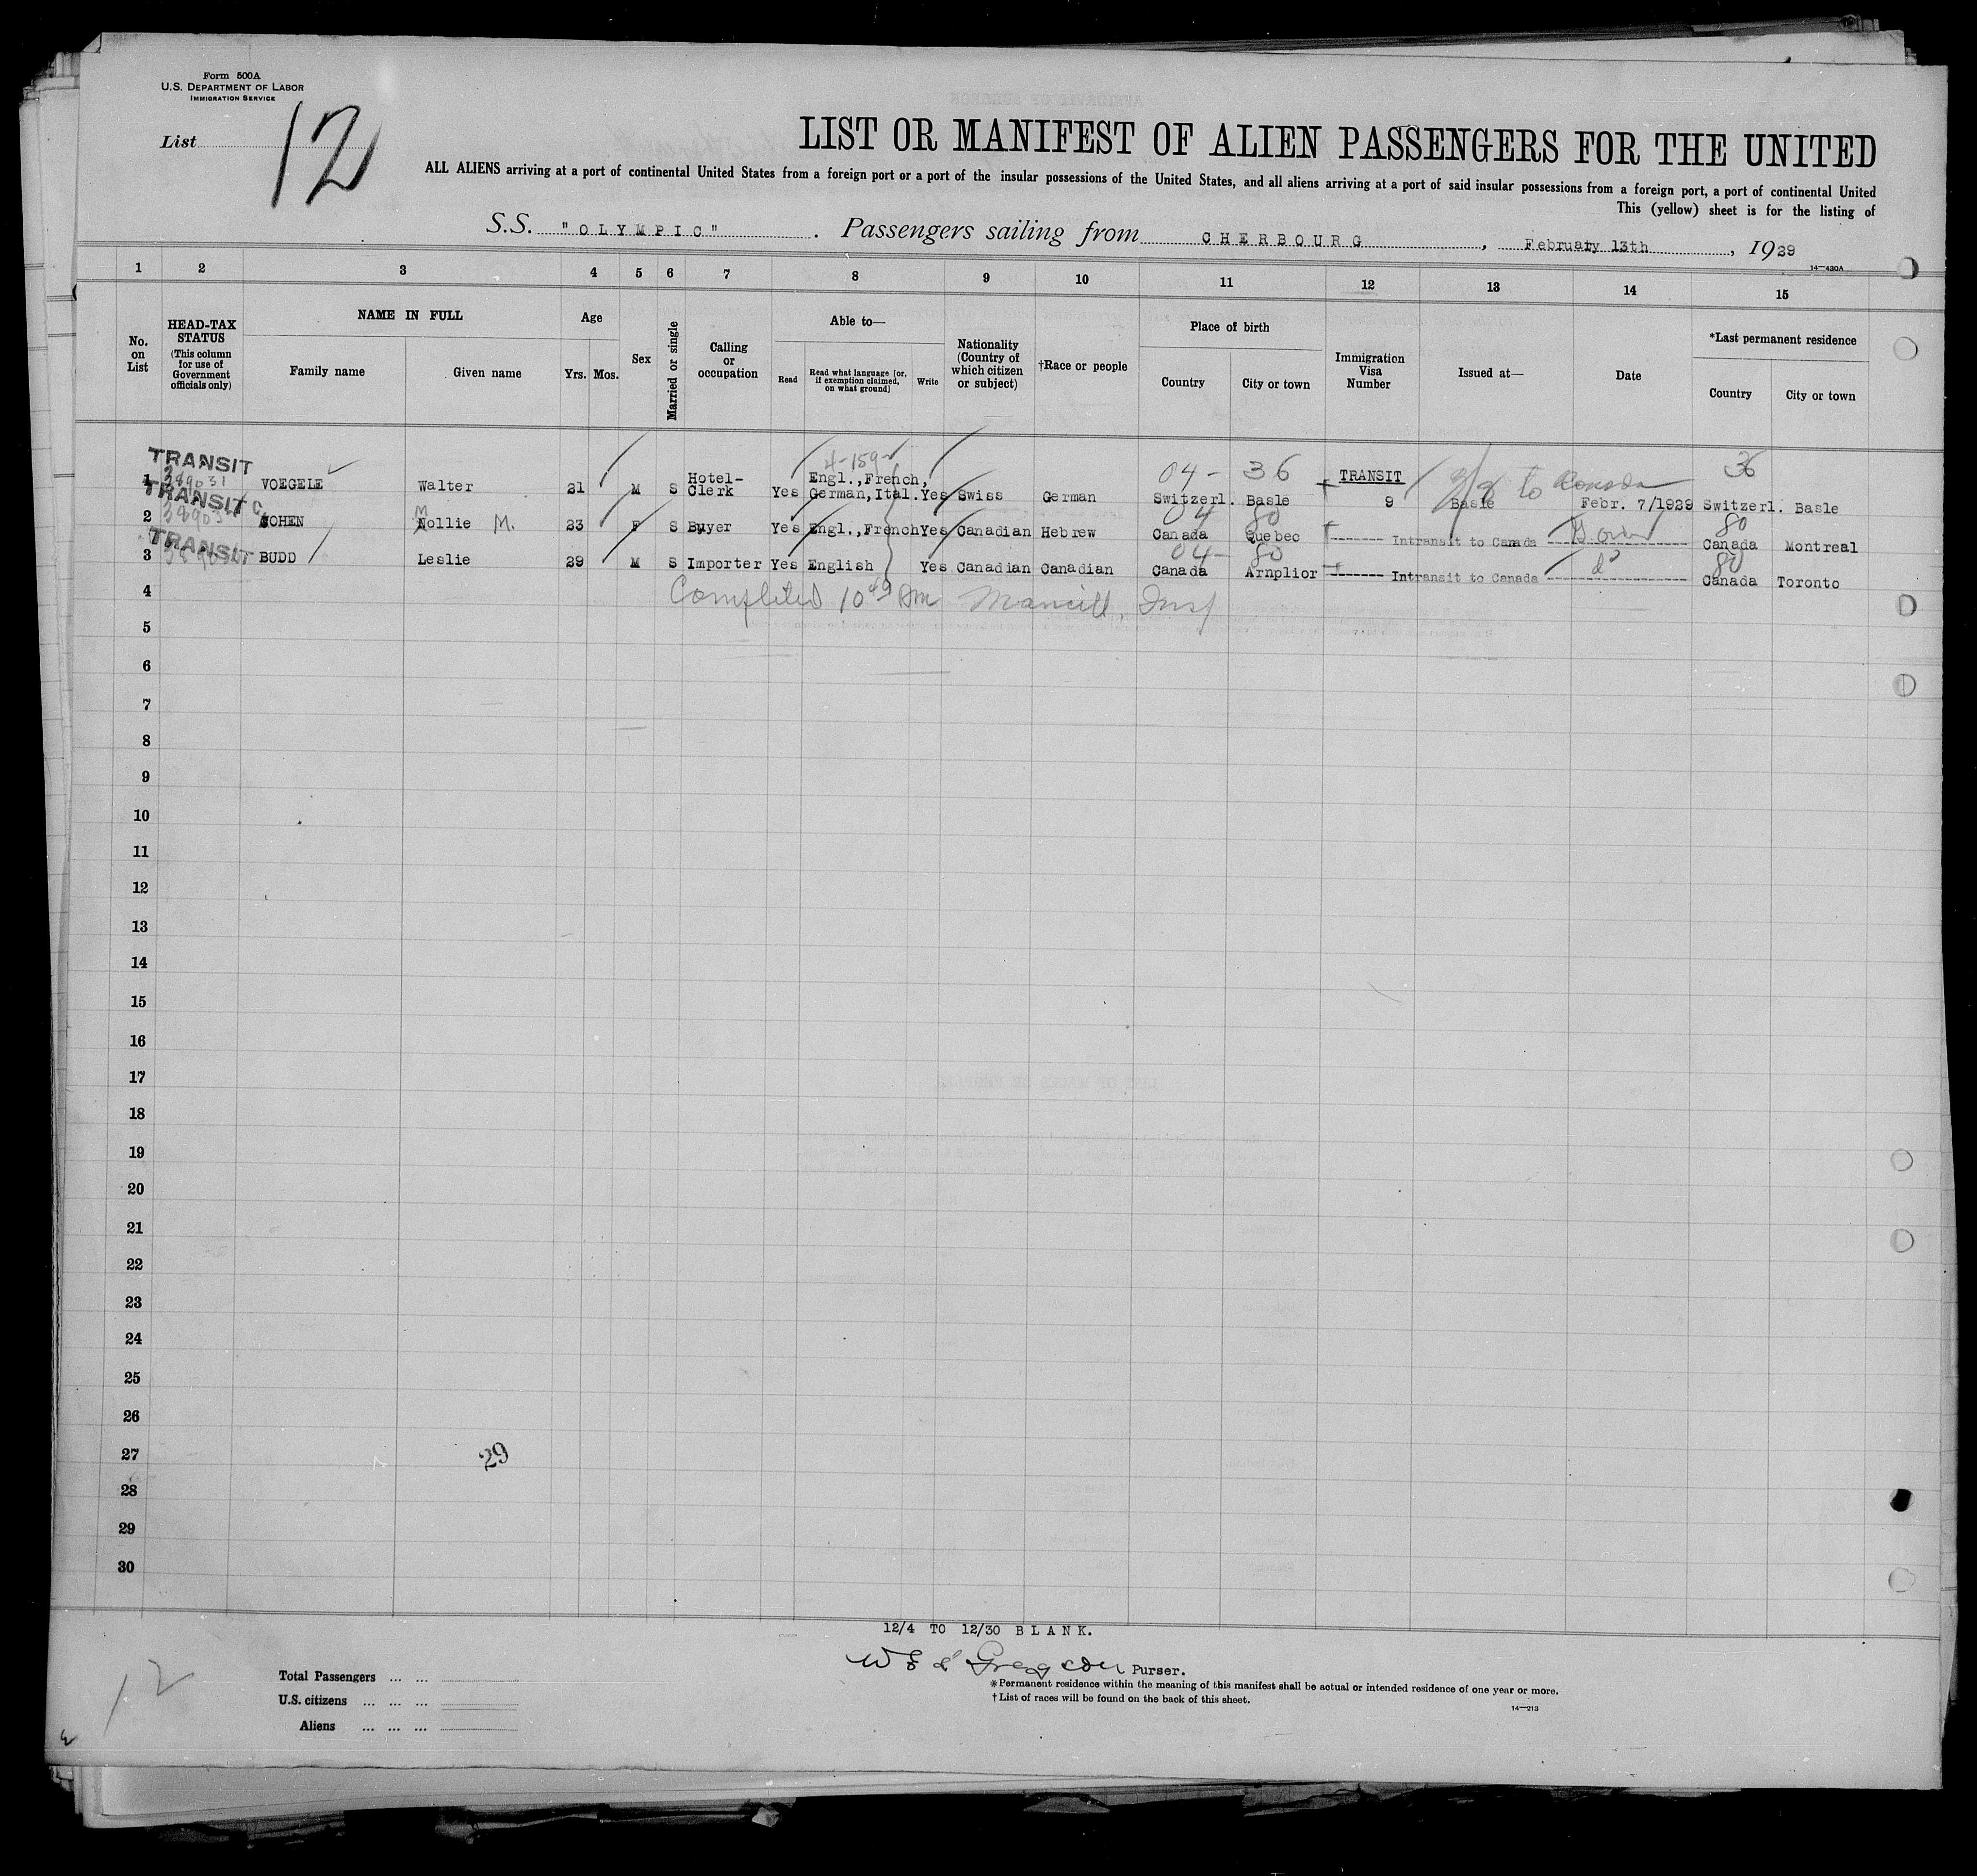 Form 500A
U.S. DEPARTMENT OF LABOR
IMMIGRATION SERVICE
List 12
LIST OR MANIFEST OF ALIEN PASSENGERS FOR THE UNITED
ALL ALIENS arriving at a port of continental United States from a foreign port or a port of the insular possessions of the United States, and all aliens arriving at a port of said insular possessions from a foreign port, a port of continental United
This (yellow) sheet is for the listing of
S.S. "OLYMPIC". Passengers sailing from CHERBOURG, February 13th, 1929
14—430A
1 2 3 4 5 6 7 8 9 10 11 12 13 14 15
No. on List
HEAD-TAX STATUS
(This column for use of Government officials only)
NAME IN FULL
Family name Given name
Age
Yrs. Mos.
Sex
Married or single
Calling or occupation
Able to—
Read
Read what language [or, if exemption claimed, on what ground]
Write
Nationality (Country of which citizen or subject)
†Race or people
Place of birth
Country City or town
Immigration Visa Number
Issued at—
Date
*Last permanent residence
Country City or town
TRANSIT 4-159 04- 36 TRANSIT to Canada 36
1 389031 VOEGELE Walter 21 M S Hotel-Clerk Yes Engl.,French, German,Ital. Yes Swiss German Switzerl. Basle 9 Basle Febr. 7/1929 Switzerl. Basle
TRANSIT C M 04 80 80
2 COHEN Nollie M. 23 F S Buyer Yes Engl.,French Yes Canadian Hebrew Canada Quebec Intransit to Canada Canada Montreal
TRANSIT 04- 80 do 80
3 BUDD Leslie 29 M S Importer Yes English Yes Canadian Canadian Canada Arnplior Intransit to Canada Canada Toronto
4 Completed 10 49 AM Insp
5
6
7
8
9
10
11
12
13
14
15
16
17
18
19
20
21
22
23
24
25
26
27 29
28
29
30
12/4 TO 12/30 BLANK.
Purser.
*Permanent residence within the meaning of this manifest shall be actual or intended residence of one year or more.
†List of races will be found on the back of this sheet.
14—213
12
Total Passengers ... ...
U.S. citizens ... ... ...
Aliens ... ... ...